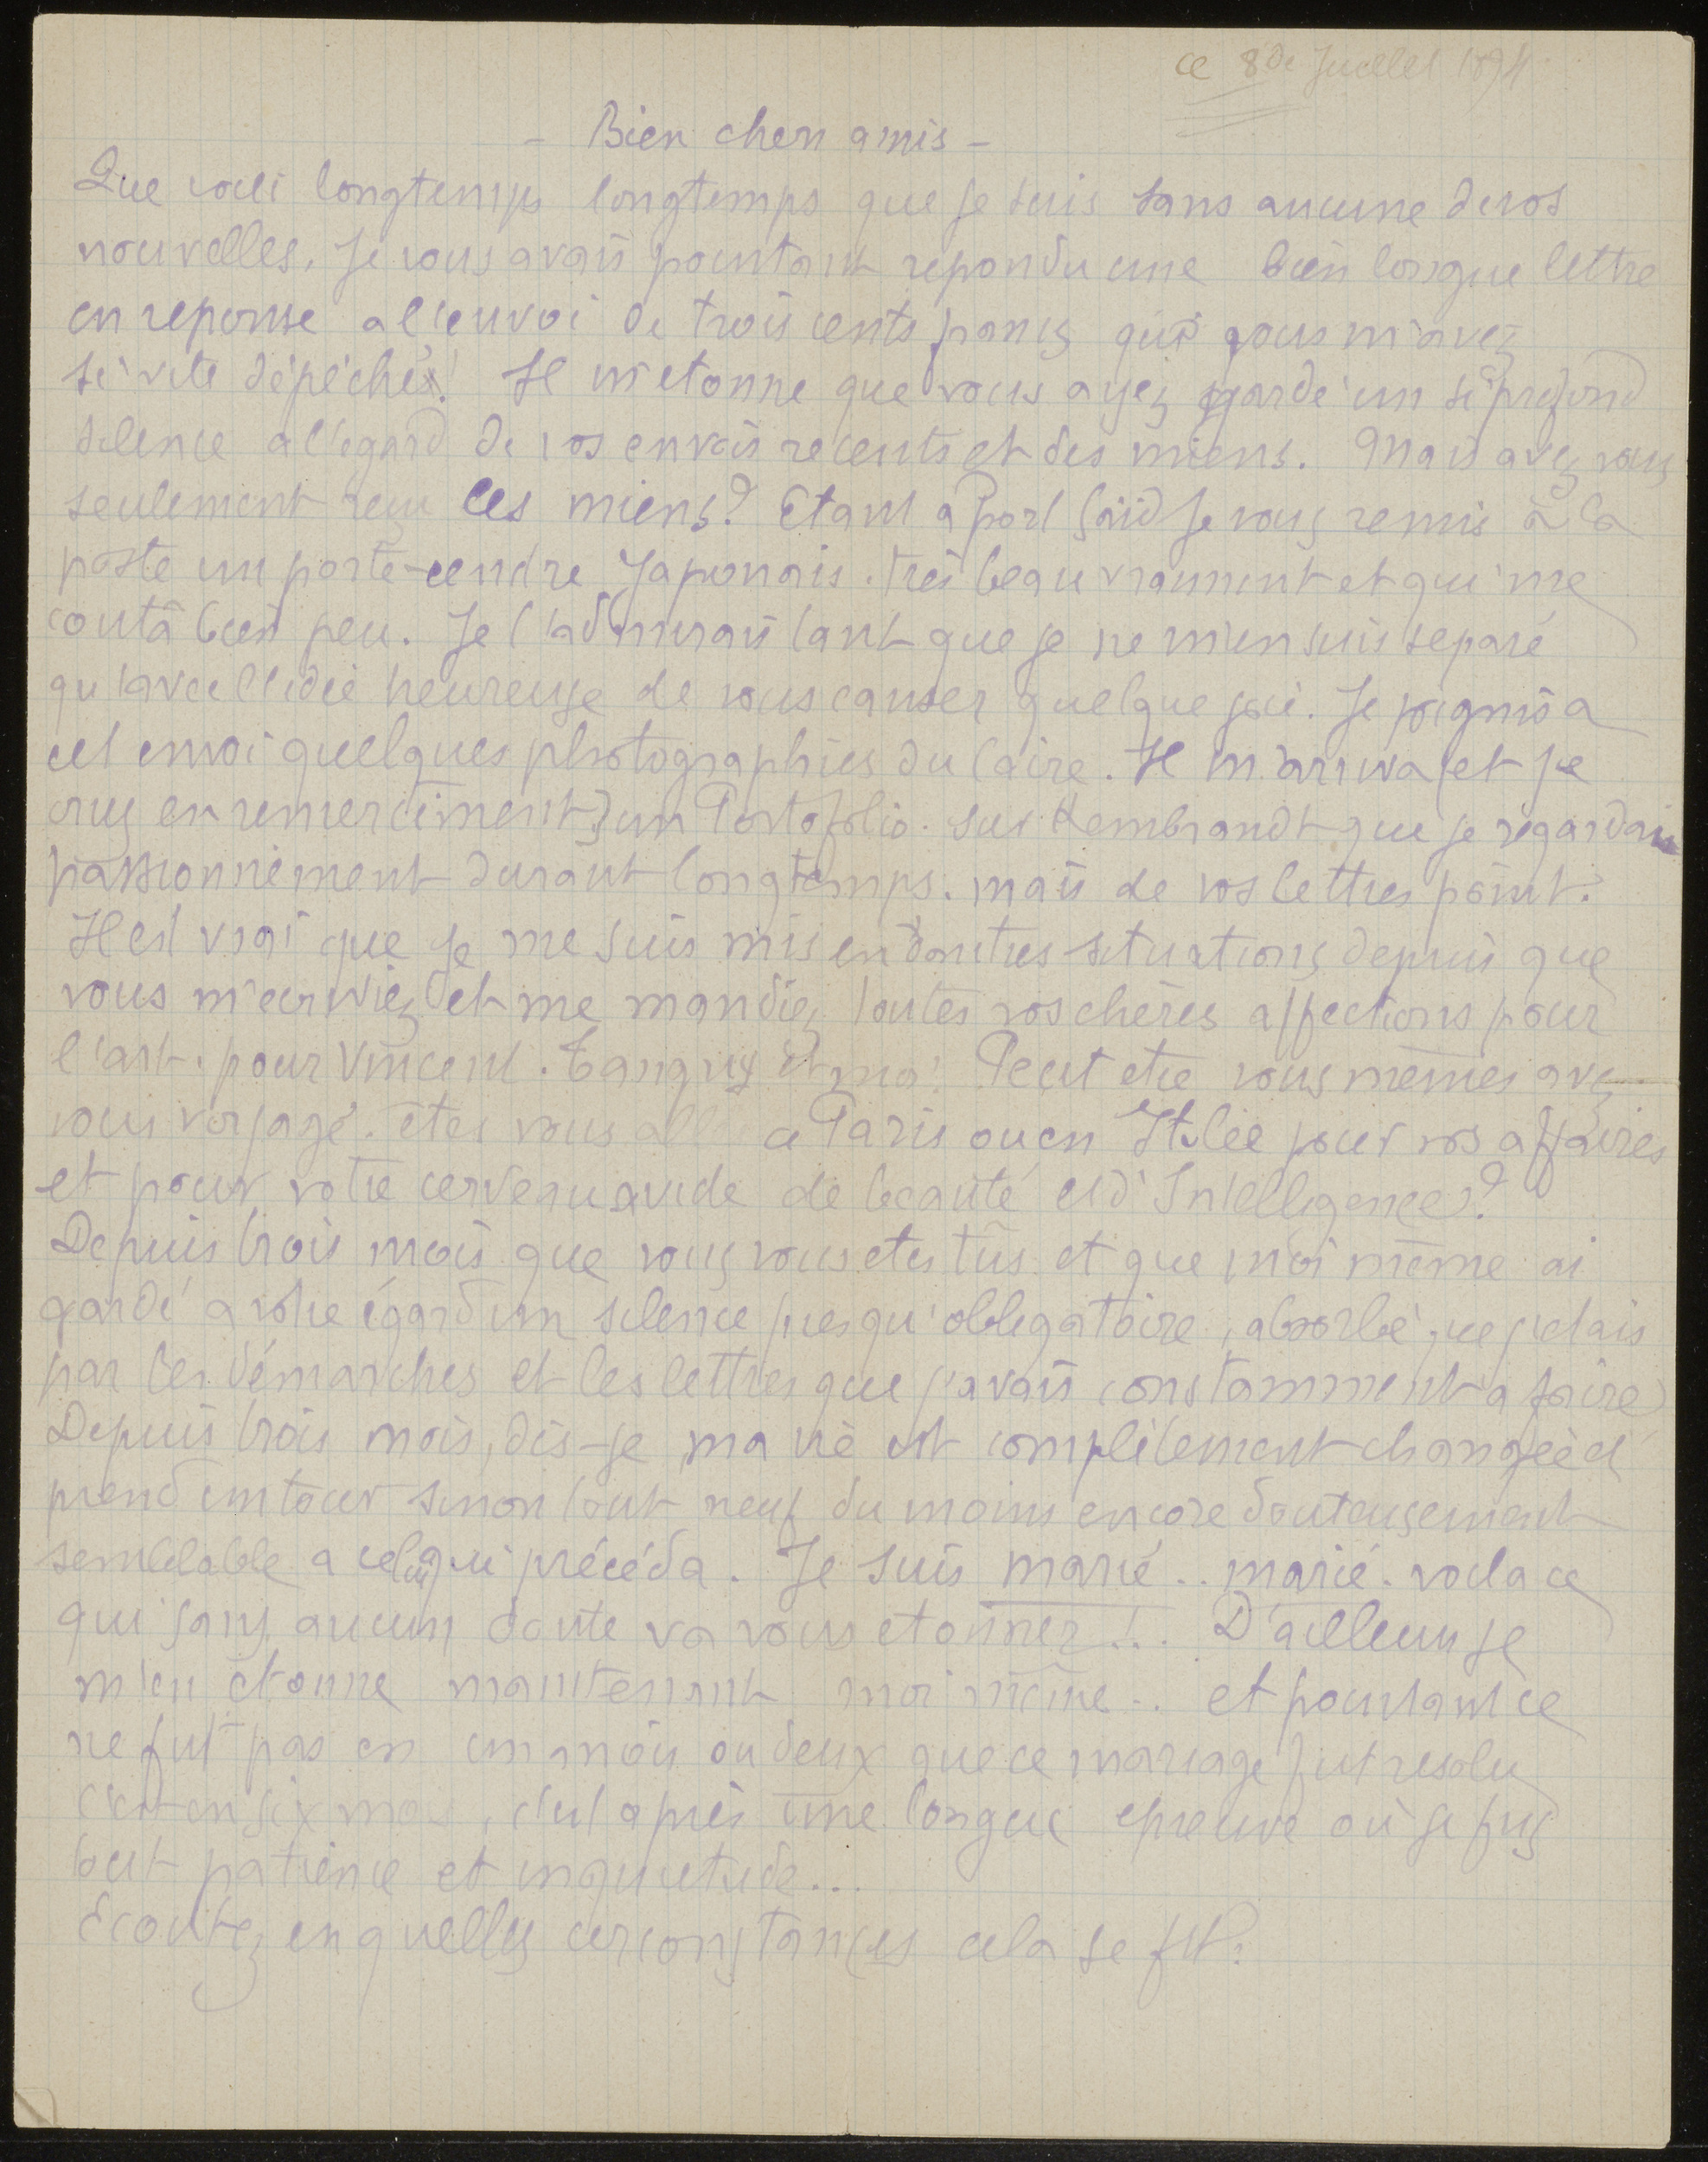 ce 8 de Juillet 1894.
- Bien chers amis -
Que voili longtemps longtemps que je suis sans aucune de vos
nouvelles. Je vous avais pourtant repondu une bien longue lettre
en reponse a l'envoi de trois cents francs que vous m'avez
si vite dépéchés! Il m'etonne que vous ayez gardé un si profond
silence a l'egard de vos envois recents et des miens. Mais avez vous
seulement reçu les miens? Etant a Port Saïd je vous remis à la
poste un porte-cendre Japonais. très beau vraiment et qui me
couta bien peu. Je l'admirais tant que je ne m'en suis separé
qu'avec l'idée heureuse de vous causer quelque joie. Je joignis a
cet envoi quelques photographies du Caire. Il m'arriva (et je
crus en remerciment) un Portofolio. sur Rembrandt que je regardais
passionnément durant longtemps. mais de vos lettres point.
Il est vrai que je me suis mis en d'autres situations depuis que
vous m'ecriviez et me mandiez toutes vos chères affections pour
l'art. pour Vincent. Tanguy et moi! Peut etre vous mêmes avez
vous voyagé. êtes vous allé a Paris ou en Italie pour vos affaires
et pour votre cerveau avide de beauté et d'Intelligence?
Depuis trois mois que vous vous etes tus et que moi même ai
gardé a votre égard un silence presqu'obligatoire, absorbé que j'etais
par les démarches et les lettres que j'avais constamment a faire
Depuis trois mois, dis-je ma vie est complètement changée et
prend un tour sinon tout neuf du moins encore douteusement
semblable a celui qui précéda. Je suis marié.. marié. voila ce
qui sans aucun doute va vous etonner!.. D'ailleurs je
m'en étonne maintenant moi même.. et pourtant ce
ne fut pas en un mois ou deux que ce mariage fut resolu
c'est en six mois, c'est après une longue epreuve où je fus
tout patience et inquietude...
Ecoutez en quelles circonstances cela se fit: